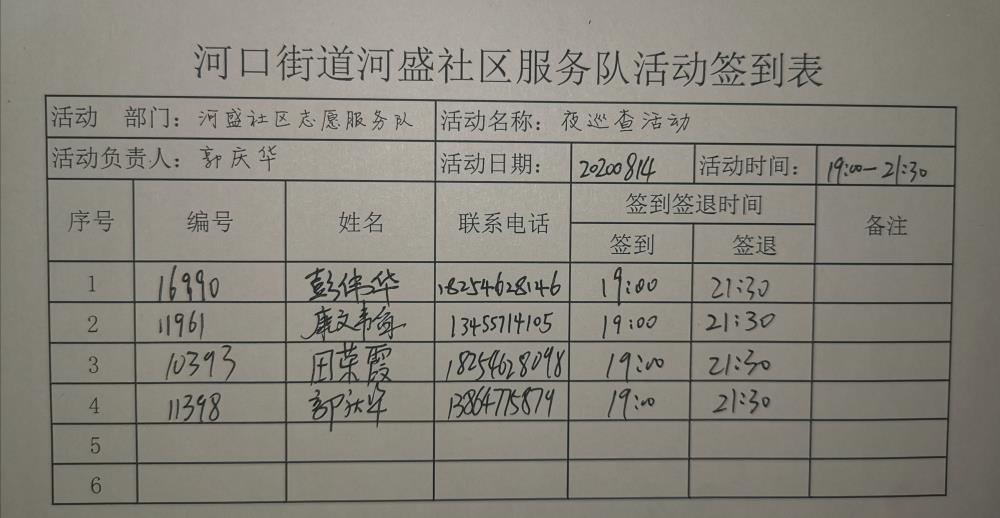 河口街道河盛社区服务队活动签到表
活动 部门：河盛社区志愿服务队 活动名称：夜巡查活动
活动负责人：郭庆华 活动日期：20200814 活动时间：19:00—21:30
序号 编号 姓名 联系电话 签到签退时间 备注
签到 签退
1 16990 彭伟华 18254628146 19:00 21:30
2 11961 13455714105 19:00 21:30
3 10393 田荣霞 18254628098 19:00 21:30
4 11398 郭庆华 13864775879 19:00 21:30
5
6